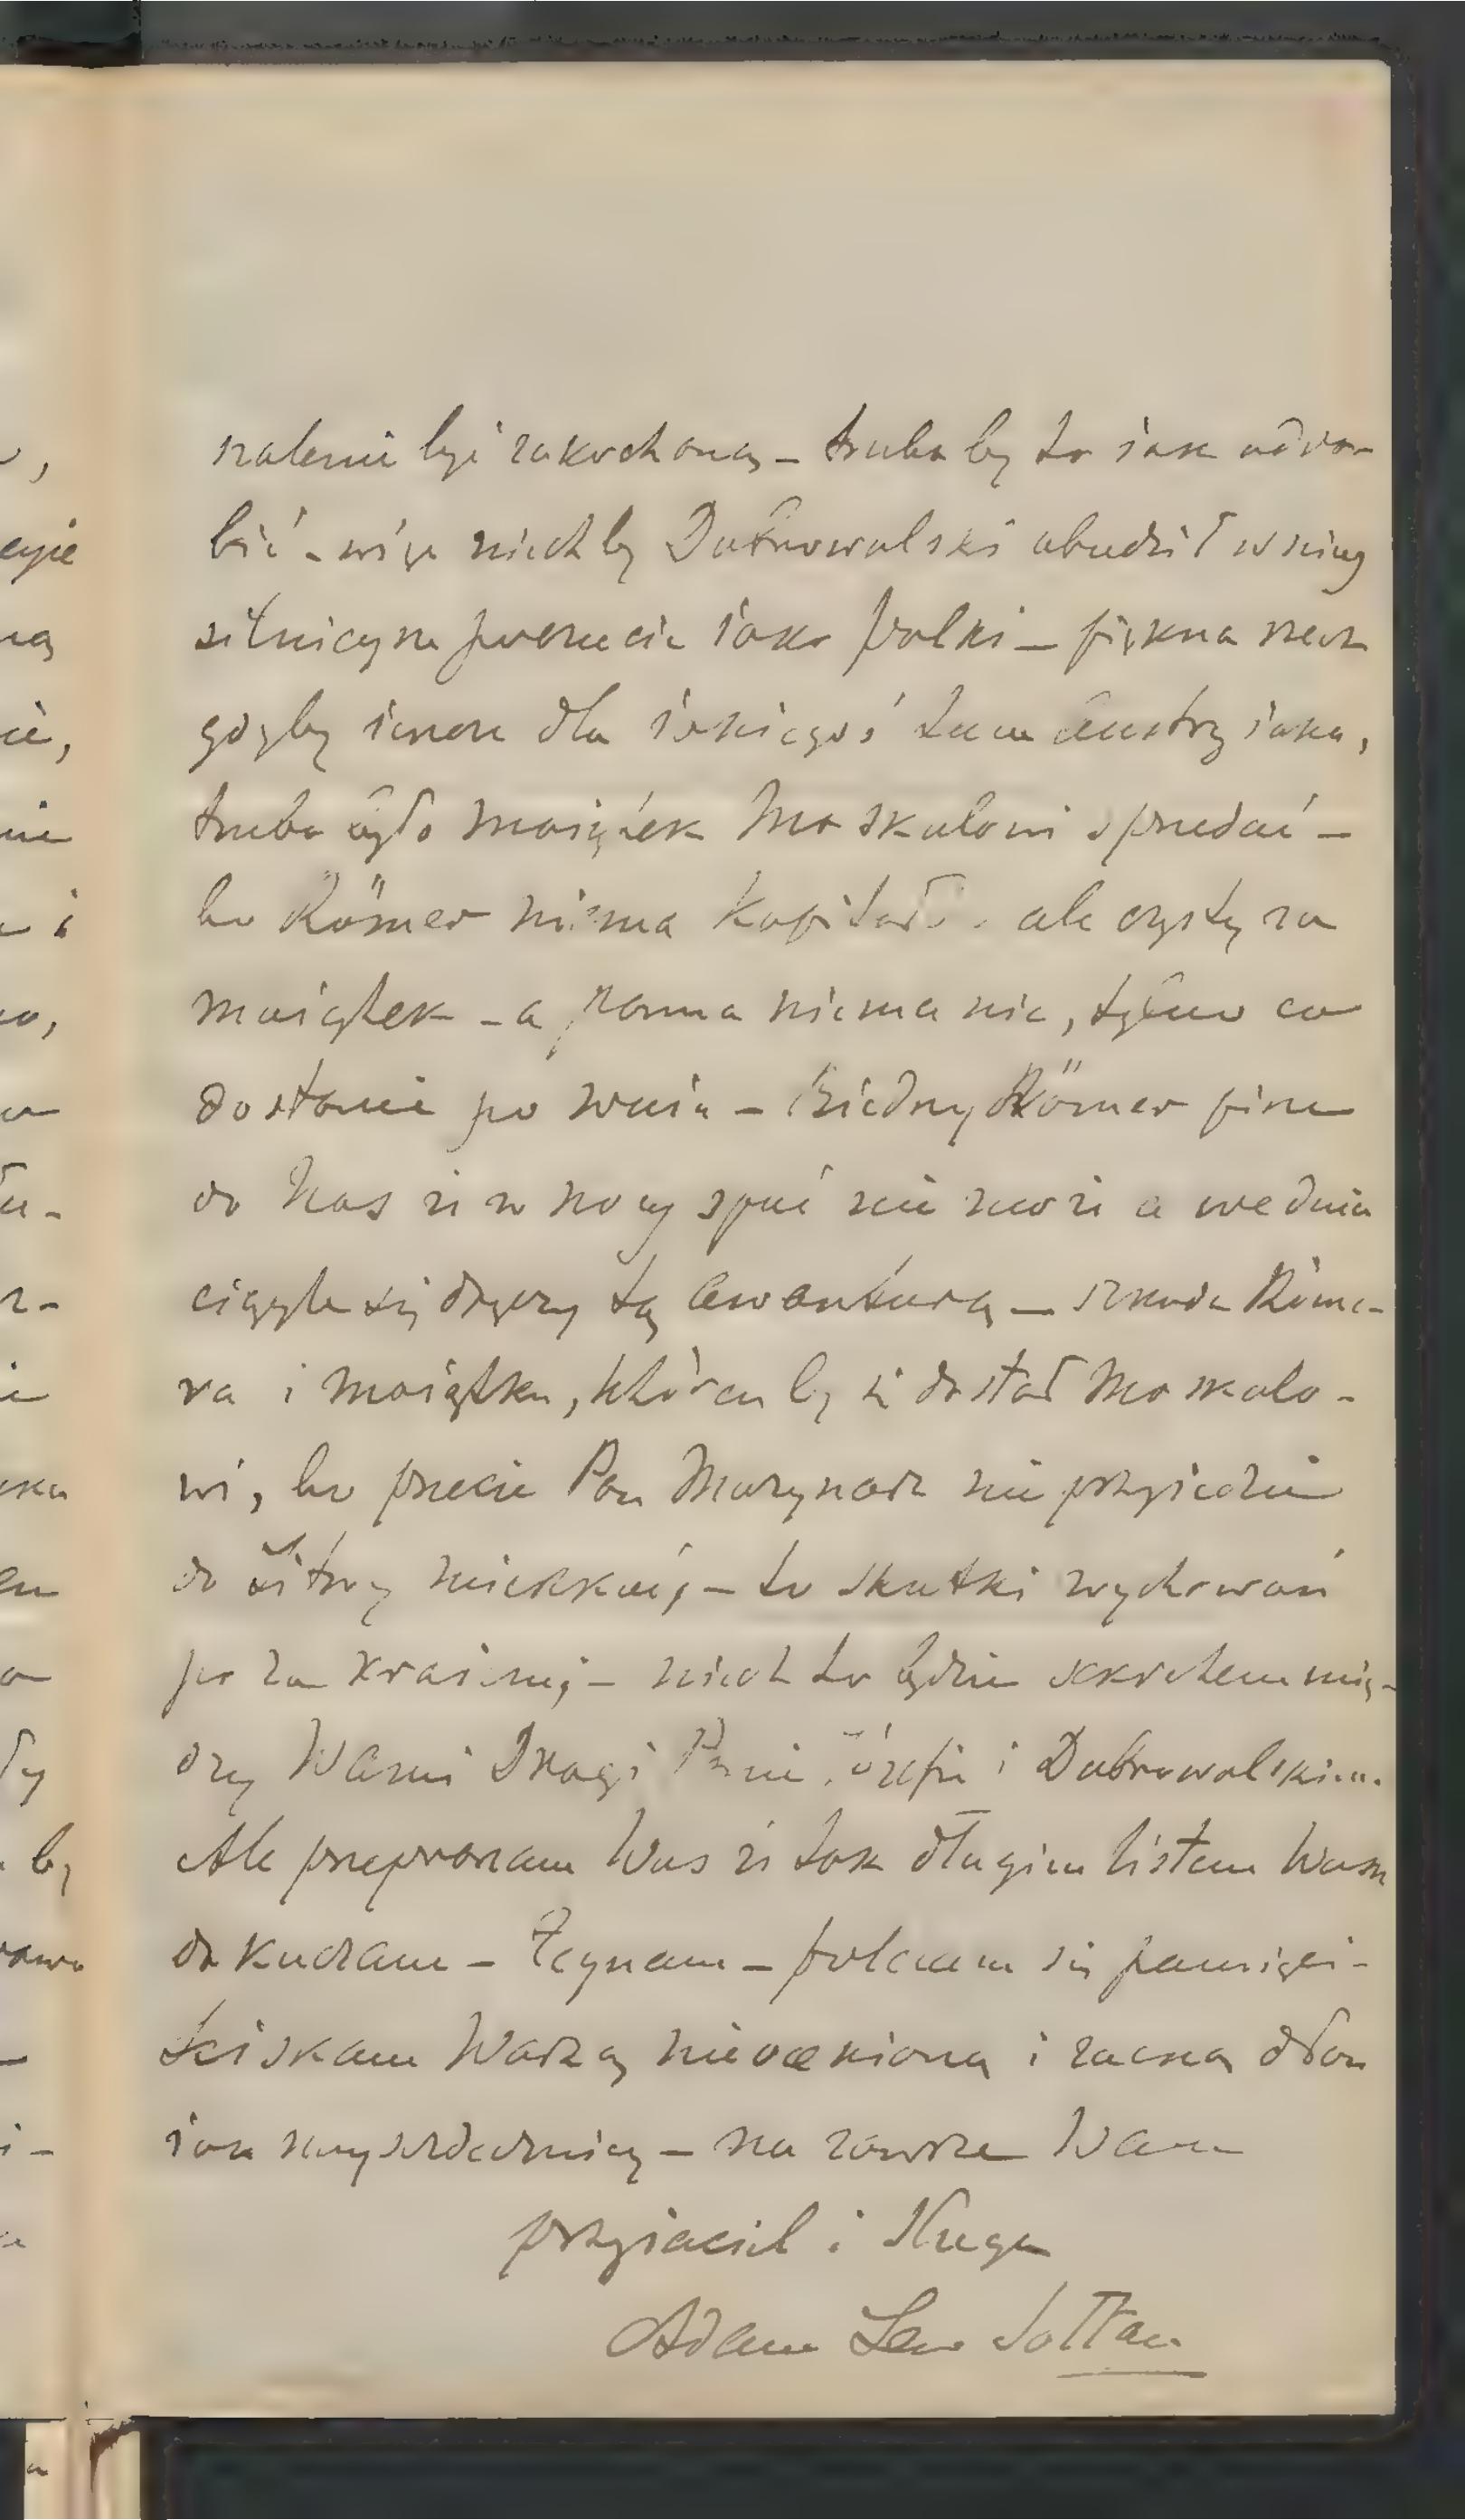 szalenie być zakochaną – trzeba by to jak odro-
bić – więc niechby Dobrowolski obudził w niej
silniejsze poczucie jako Polki – piękna rzecz
gdyby ieszcze dla iakiegoś tam Austryiaka,
trzeba było maiątek Moskalowi sprzedać –
bo Römer niema kapitału ale czysty za
maiątek – a panna niema nic, tylko co
dostanie po wuiu – Biedny Römer pisze
do Nas że w nocy spać nie może a we dnia
ciągle się dręczy tą awanturą – szkoda Röme-
ra i maiątku, któren by się dostał Moskalo-
wi, bo przecie Pan Marynarz nie przyiedzie
do Litwy mieszkać, – to skutki wychowań
po za kraiem, – niech to będzie sekretem mię-
dzy Wami Drogi Panie Józefie i Dobrowolskim.
Ale przepraszam Was że tak długim listem Wam
dokuczam – Żegnam – polecam się pamięci –
Ściskam Waszą nieocenioną i zacną dłoń
iak nayserdeczniey – na zawsze Wam
przyiaciel i Sługa
Adam Lew Sołtan